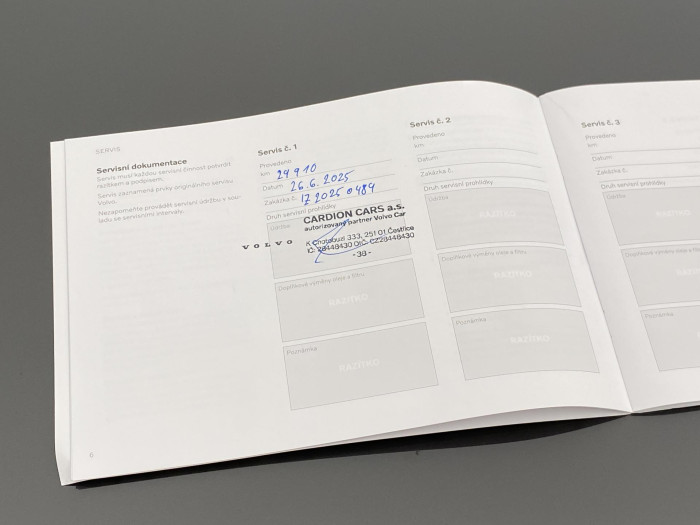 SERVIS
Servisní dokumentace
Servis musí každou servisní činnost potvrdit
razítkem a podpisem.
Servis zaznamená prvky originálního servisu
Volvo.
Nezapomeňte provádět servisní údržbu v sou-
ladu se servisními intervaly.
6
Servis č. 1
Provedeno
km 29 910
Datum 26.6.2025
Zakázka č. 1Z 2025 0484
Druh servisní prohlídky
Údržba
CARDION CARS a.s.
autorizovaný partner Volvo Car
VOLVO
K Chotobuzi 333, 251 01 Čestlice
IČ: 28448430 DIČ: CZ28448430
-38-
Doplňkové výměny oleje a filtru
RAZÍTKO
Poznámka
RAZÍTKO
Servis č. 2
Provedeno
km
Datum
Zakázka č.
Druh servisní prohlídky
Údržba
RAZÍTKO
Doplňkové výměny oleje a filtru
RAZÍTKO
Poznámka
RAZÍTKO
Servis č. 3
Provedeno
km
Datum
Zakázka č.
Druh servisní prohlídky
Údržba
Doplňkové výměny oleje
Poznámka